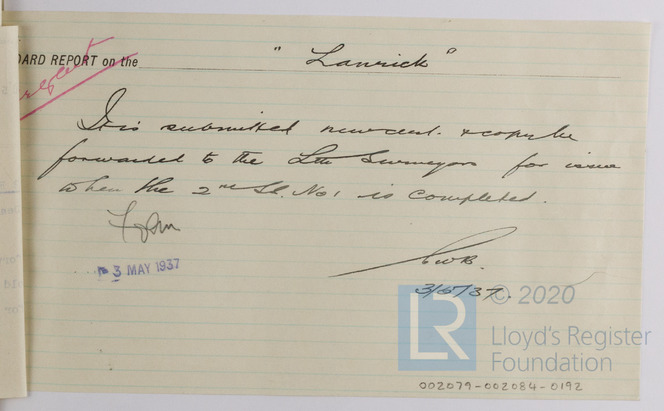 OARD REPORT on the "Lanrick"
It is submitted new cert. & copy be
forwarded to the Lth Surveyors for issue
when the 2nd SS. No 1 is completed.
3 MAY 1937
CWB.
3/5/37.
LR © 2020
Lloyd's Register
Foundation
002079-002084-0192